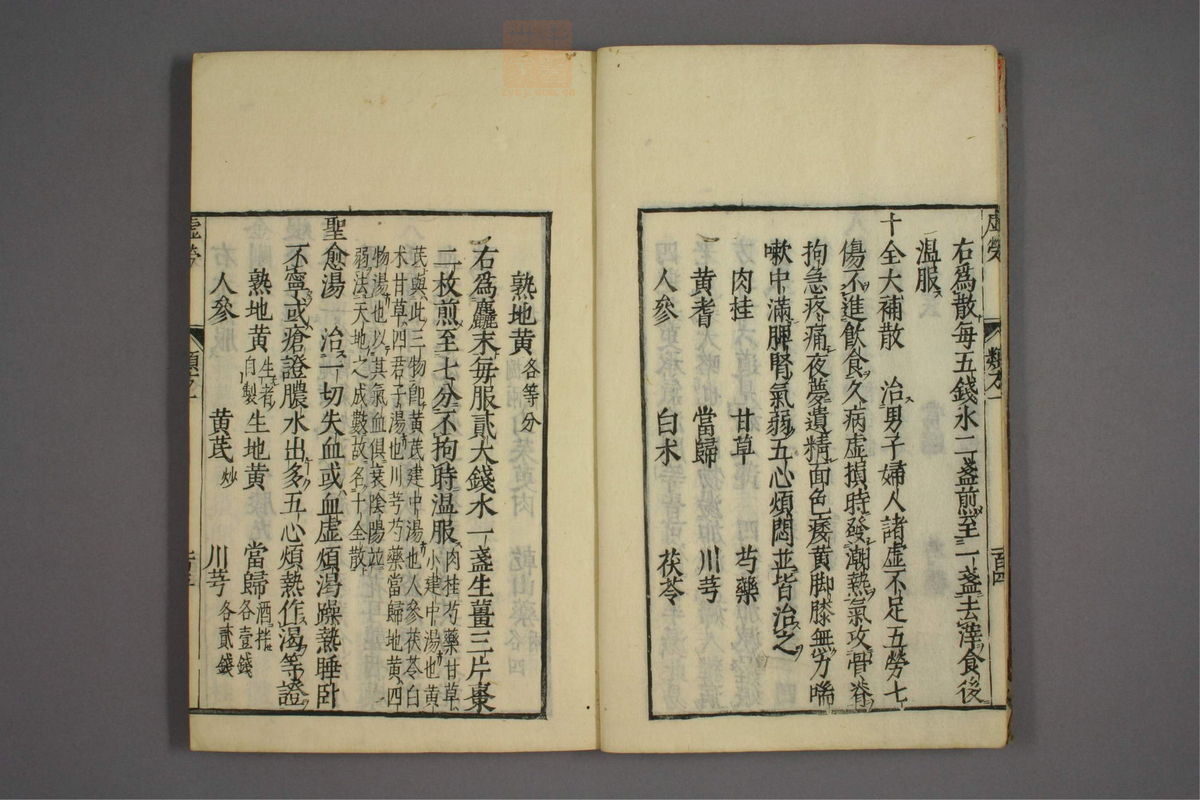 右爲散每五錢水二盞煎至一盞去滓食後
溫服
十全大補散　治男子婦人諸虛不足五勞七
傷不進飲食久病虛損時發潮熱氣攻骨脊
拘急疼痛夜夢遺精面色痿黄脚膝無力喘
嗽中滿脾腎氣弱五心煩悶並皆治之
肉桂　甘草　芍藥
黄耆　當歸　川芎
人參　白术　茯苓
熟地黄各等分
右爲麤末每服貳大錢水一盞生薑三片棗
二枚煎至七分不拘時温服肉桂芍藥甘草
小建中湯也黄
茋與此三物卽黄茋建中湯也人參茯苓白
术甘草四君子湯也川芎芍藥當歸地黄四
物湯也以其氣血俱衰陰陽並
弱法天地之成數故名十全散
聖愈湯　治一切失血或血虛煩渴躁熱睡卧
不寧或瘡證膿水出多五心煩熱作渴等證
熟地黄生者自製　生地黄　當歸酒拌各壹錢
人參　黄茋炒　川芎各貳錢
虛勞　類方